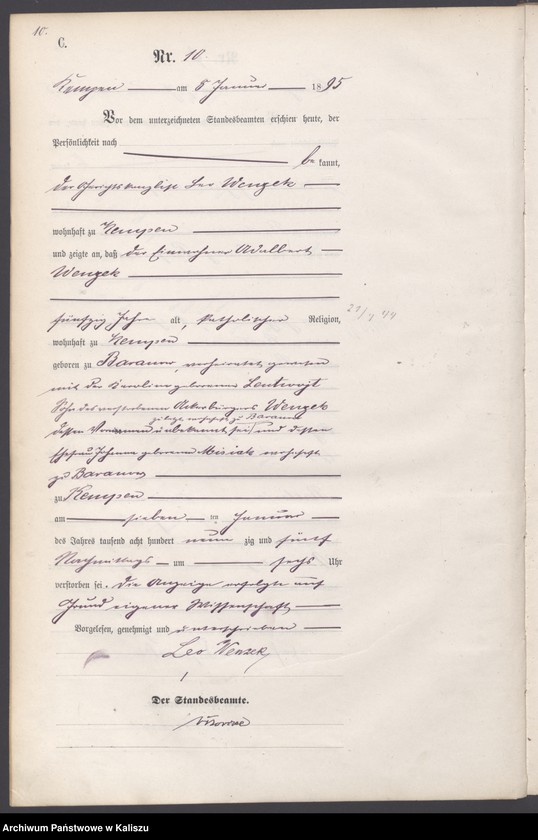 10.
C.
Nr. 10
Kempen am 8 Januar 1895
Vor dem unterzeichneten Standesbeamten erschien heute, der
Persönlichkeit nach
be kannt,
der Gerichtskanzlist Leo Wenzek
wohnhaft zu Kempen
und zeigte an, daß der Einwohner Adalbert
Wenzek
fünfzig Jahre alt, katholischer Religion,
wohnhaft zu Kempen
geboren zu Baranow, verheiratet gewesen
mit der Karoline geborenen
Sohn des verstorbenen Ackerbürgers Wenzek
zuletzt wohnhaft zu Baranow
dessen Vornamen unbekannt sei, und dessen
Ehefrau Johanna geborene Misiak wohnhaft
zu Baranow
zu Kempen
am sieben ten Januar
des Jahres tausend acht hundert neun zig und fünf
Nachmittags um sechs Uhr
verstorben sei. Die Anzeige erfolgte auf
Grund eigener Wissenschaft
Vorgelesen, genehmigt und unterschrieben
Leo Wenzek
Der Standesbeamte.
Archiwum Państwowe w Kaliszu